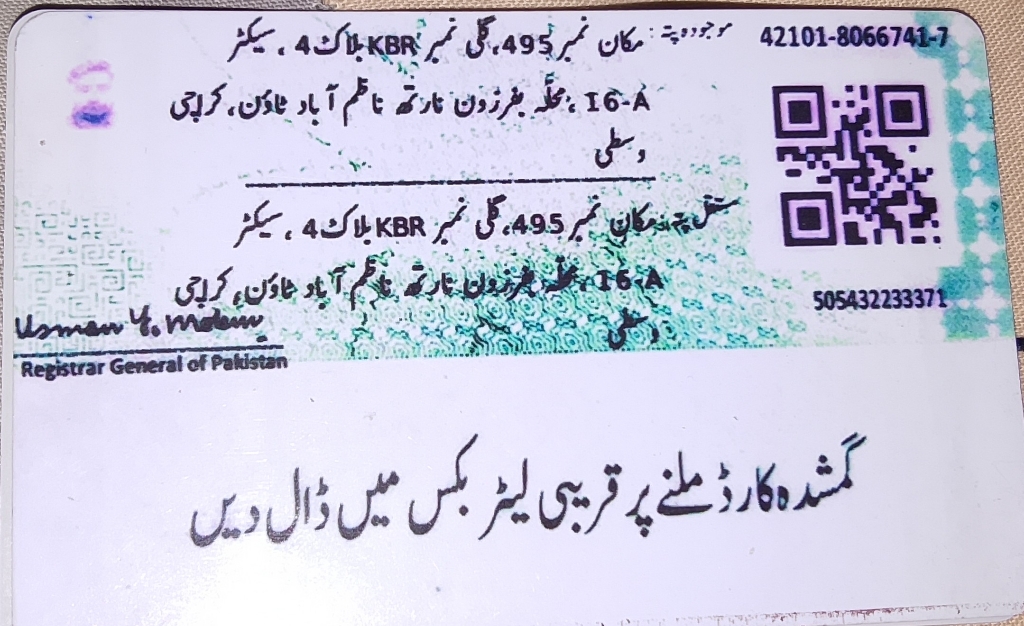 42101-8066741-7
موجودہ پتہ: مکان نمبر 495، گلی نمبر KBR بلاک 4، سیکٹر
16-A، محلہ بفرزون نارتھ ناظم آباد ٹاؤن، کراچی
وسطی
مستقل پتہ: مکان نمبر 495، گلی نمبر KBR بلاک 4، سیکٹر
16-A، محلہ بفرزون نارتھ ناظم آباد ٹاؤن، کراچی
وسطی
505432233371
Usman Y. Mobin
Registrar General of Pakistan
گمشدہ کارڈ ملنے پر قریبی لیٹر بکس میں ڈال دیں